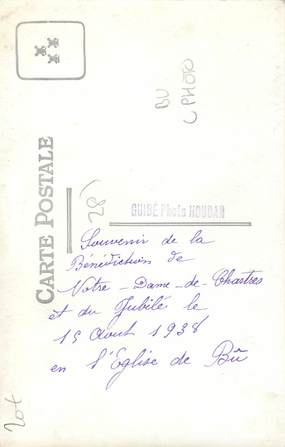 BU
CPHOTO
CARTE POSTALE
28)
GUIBÉ Photo HOUDAN
Souvenir de la
Bénédiction de
Notre-Dame-de-Chastres
et du Jubilé le
15 Août 1938
en l'Eglise de Bû
20t